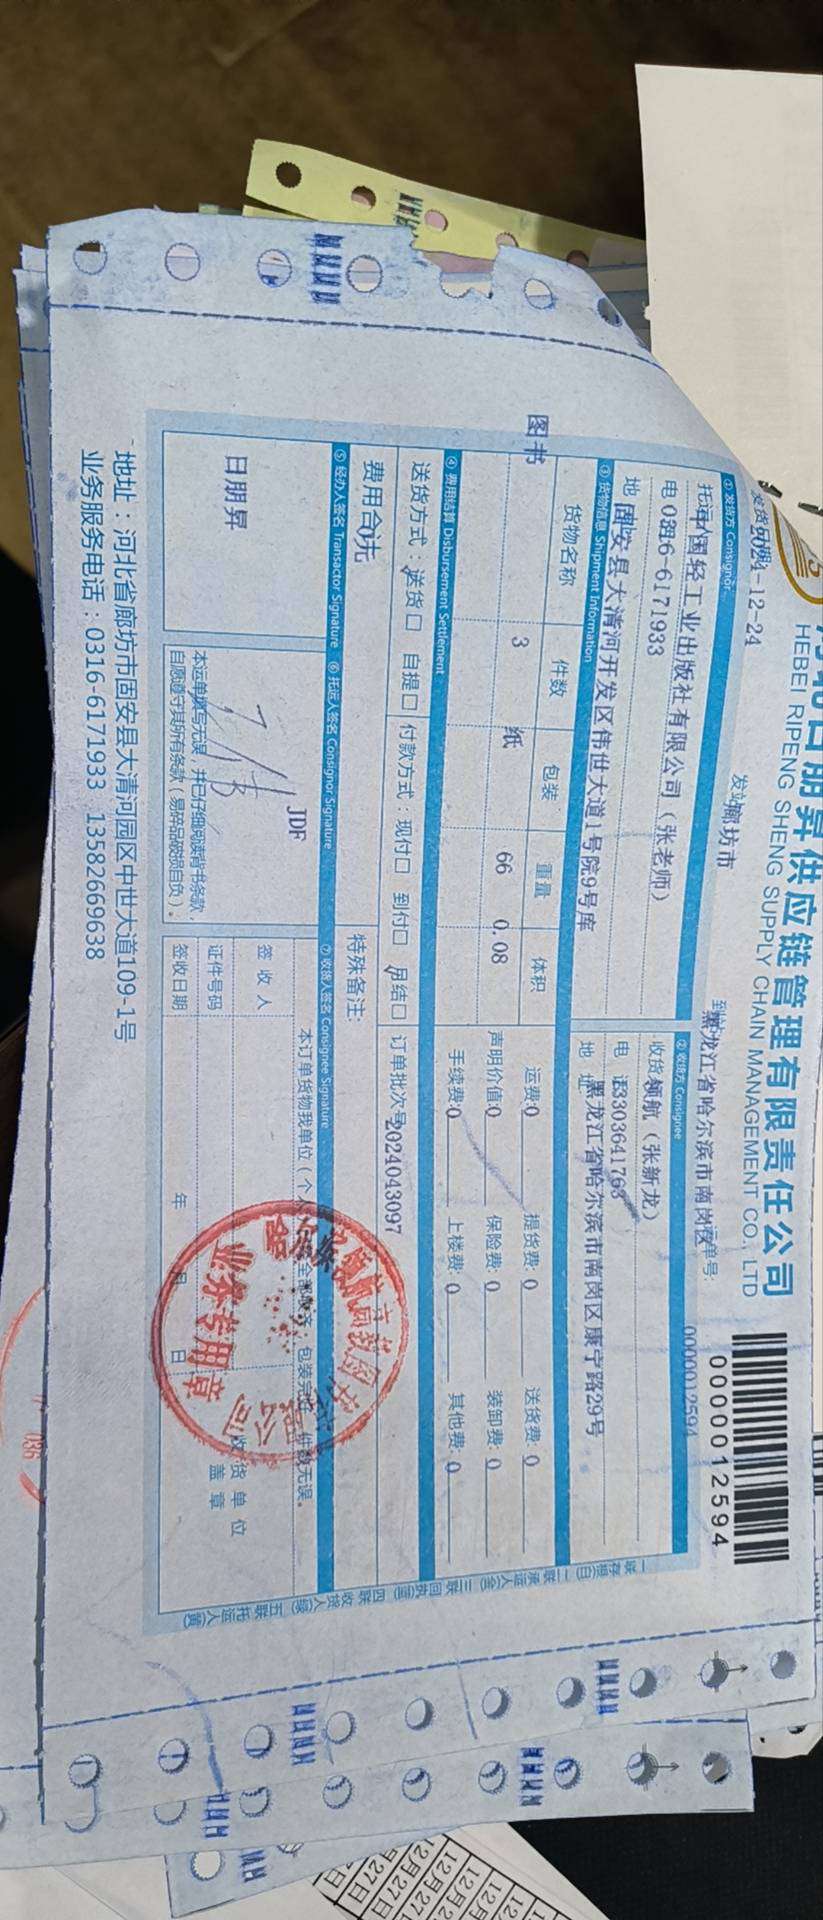 日朋昇供应链管理有限责任公司
HEBEI RIPENG SHENG SUPPLY CHAIN MANAGEMENT CO., LTD
0000012594
2024-12-24
发站 廊坊市
黑龙江省哈尔滨市南岗区
单号:
0000012594
① 发货方 Consignor
② 收货方 Consignee
中国轻工业出版社有限公司(张老师)
收货 领航(张新龙)
电 0316-6171933
电 话 13303641763
地 固安县大清河开发区伟世大道1号院9号库
地 址 黑龙江省哈尔滨市南岗区康宁路29号
③ 货物信息 Shipment Information
货物名称 件数 包装 重量 体积
运费:0 提货费: 0 送货费: 0
图书 3 纸 66 0.08
声明价值:0 保险费: 0 装卸费: 0
手续费:0 上楼费: 0 其他费: 0
④ 费用结算 Disbursement Settlement
送货方式: 送货口 自提口 付款方式: 现付口 到付口 月结口 订单批次号 2024043097
费用合
特殊备注:
⑤ 经办人签名 Transactor Signature ⑥ 托运人签名 Consignor Signature ⑦ 收货人签名 Consignee Signature
日朋昇
JDF
本运单填写无误,并已仔细阅读背书条款,
自愿遵守其所有条款(易碎品破损自负)。
本订单货物我单位(个人 包装完 件数无误。
签 收 人
收货单位
证件号码:
盖 章
签收日期 年 月 日
业务专用章
地址:河北省廊坊市固安县大清河园区中世大道109-1号
业务服务电话:0316-6171933 13582669638
一联存照(白) 二联承运人(金) 三联回执(蓝) 四联收货人(绿) 五联托运人(黄)
12月27日
12月27日
12月27
12月2